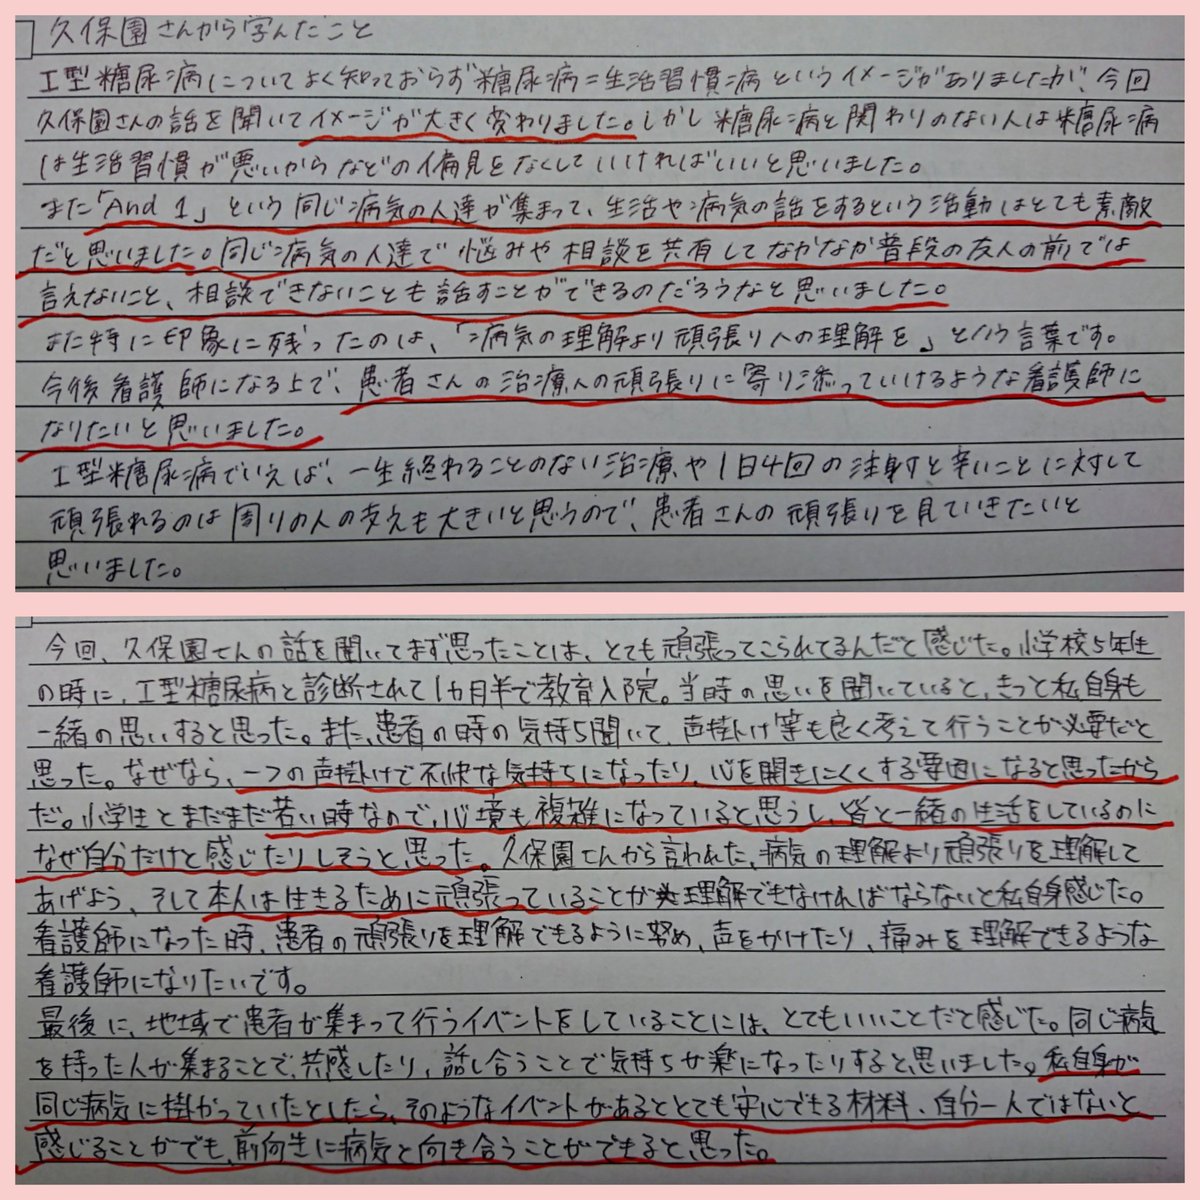 久保園さんから学んだこと
I型糖尿病についてよく知っておらず糖尿病=生活習慣病というイメージがありましたが、今回
久保園さんの話を聞いてイメージが大きく変わりました。しかし糖尿病と関わりのない人は糖尿病
は生活習慣が悪いからなどの偏見をなくしていければいいと思いました。
また「And 1」という同じ病気の人達が集まって、生活や病気の話をするという活動はとても素敵
だと思いました。同じ病気の人達で悩みや相談を共有してなかなか普段の友人の前では
言えないこと、相談できないことも話すことができるのだろうなと思いました。
また特に印象に残ったのは、「病気の理解より頑張りへの理解を」という言葉です。
今後看護師になる上で、患者さんの治療への頑張りに寄り添っていけるような看護師に
なりたいと思いました。
I型糖尿病でいえば、一生終わることのない治療や1日4回の注射と辛いことに対して
頑張れるのは周りの人の支えも大きいと思うので、患者さんの頑張りを見ていきたいと
思いました。
今回、久保園さんの話を聞いてまず思ったことは、とても頑張ってこられてるんだと感じた。小学校5年生
の時に、I型糖尿病と診断されて1カ月半で教育入院。当時の思いを聞いていると、きっと私自身も
一緒の思いすると思った。また、患者の時の気持ち聞いて、声掛け等も良く考えて行うことが必要だと
思った。なぜなら、一つの声掛けで不快な気持ちになったり、心を開きにくくする要因になると思ったから
だ。小学生とまだまだ若い時なので、心境も複雑になっていると思うし、皆と一緒の生活をしているのに
なぜ自分だけと感じたりしそうと思った。久保園さんから言われた、病気の理解より頑張りを理解して
あげよう、そして本人は生きるために頑張っていることが理解できなければならないと私自身感じた。
看護師になった時、患者の頑張りを理解できるように努め、声をかけたり、痛みを理解できるような
看護師になりたいです。
最後に、地域で患者が集まって行うイベントをしていることには、とてもいいことだと感じた。同じ病気
を持った人が集まることで、共感したり、話し合うことで気持ちが楽になったりすると思いました。私自身が
同じ病気に掛かっていたとしたら、そのようなイベントがあるととても安心できる材料、自分一人ではないと
感じることができ、前向きに病気と向き合うことができると思った。